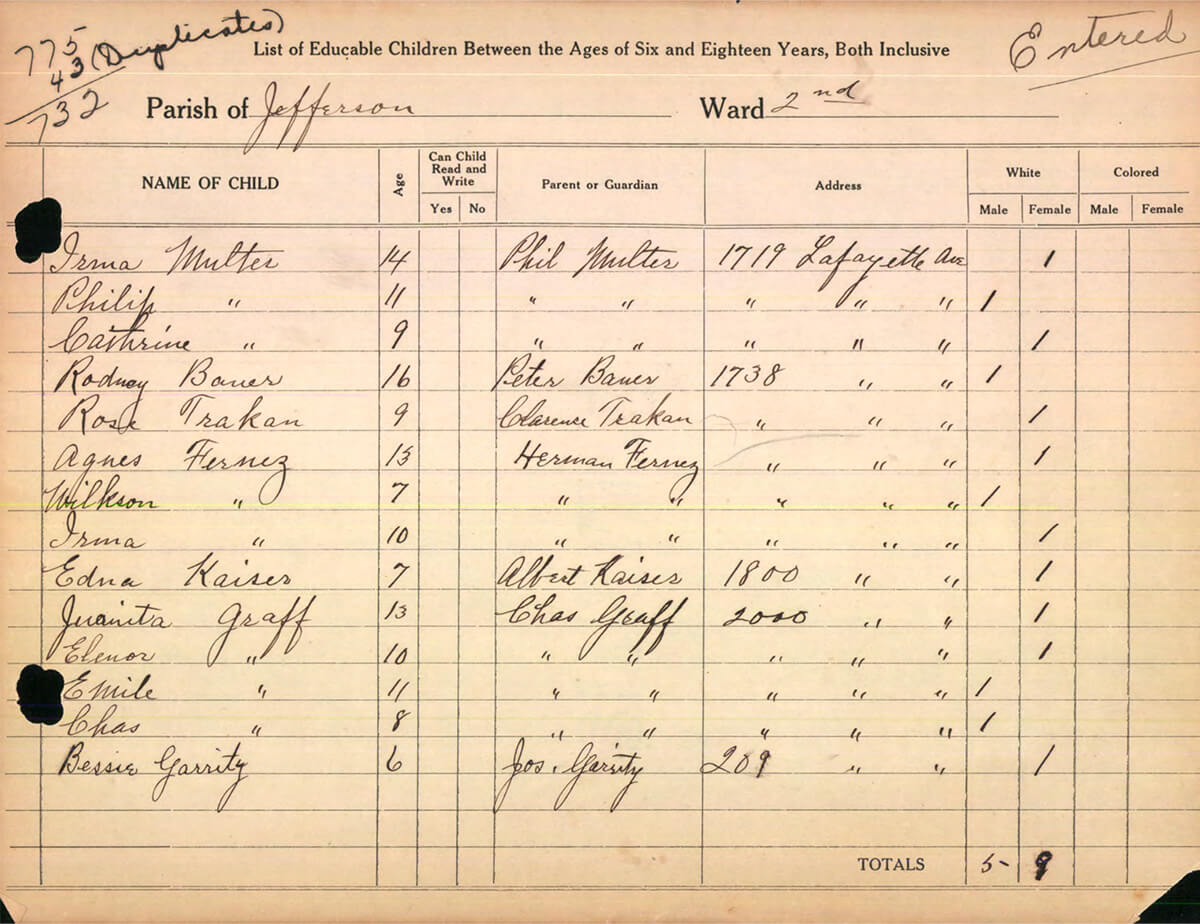 775
43 (Duplicates)
732
List of Educable Children Between the Ages of Six and Eighteen Years, Both Inclusive
Entered
Parish of Jefferson Ward 2nd
NAME OF CHILD Age Can Child Read and Write Yes No Parent or Guardian Address White Male Female Colored Male Female
Irma Multer 14 Phil Multer 1719 Lafayette Ave 1
Philip " 11 " " " " " 1
Cathrine " 9 " " " " " 1
Rodney Bauer 16 Peter Bauer 1738 " " 1
Rose Trakan 9 Clarence Trakan " " " 1
Agnes Fernez 13 Herman Fernez " " " 1
Wilkson " 7 " " " " " 1
Irma " 10 " " " " " 1
Edna Kaiser 7 Albert Kaiser 1800 " " 1
Juanita Graff 13 Chas Graff 2000 " " 1
Elenor " 10 " " " " " 1
Emile " 11 " " " " " 1
Chas " 8 " " " " " 1
Bessie Garrity 6 Jos. Garrity 209 " " 1
TOTALS 5- 9